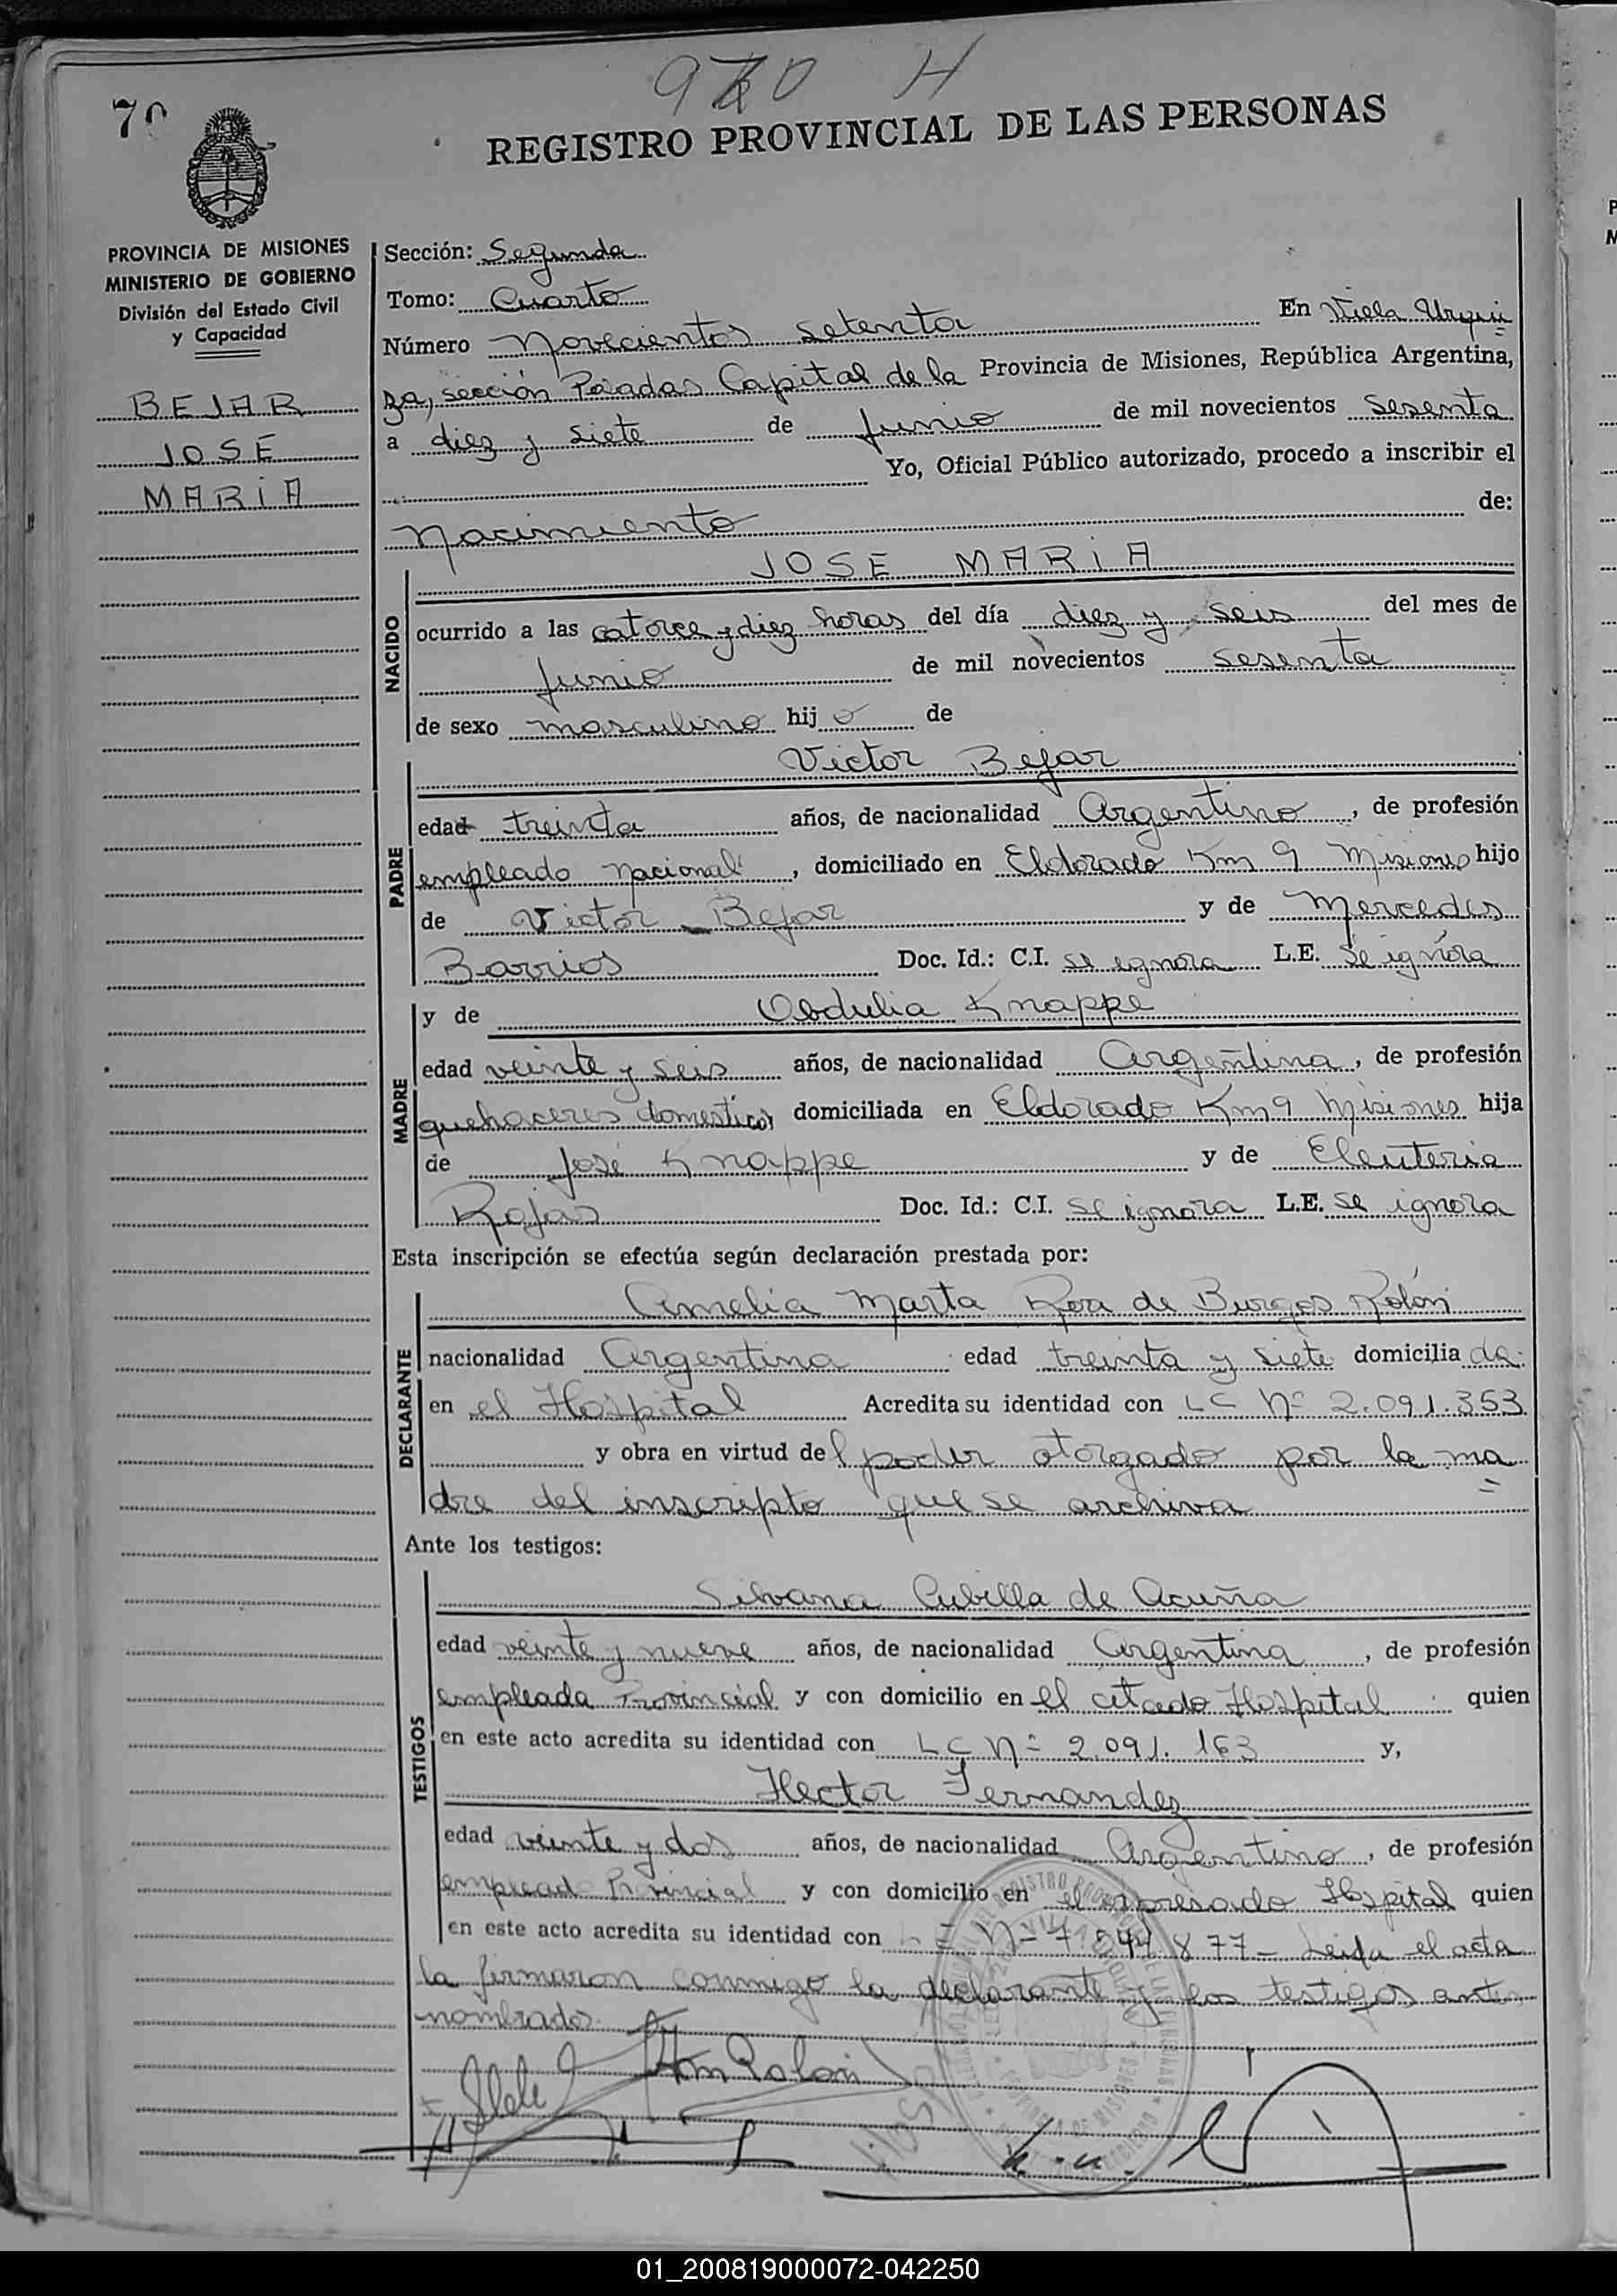 970 H
70
REGISTRO PROVINCIAL DE LAS PERSONAS
PROVINCIA DE MISIONES
MINISTERIO DE GOBIERNO
División del Estado Civil
y Capacidad
BEJAR
JOSE
MARIA
Sección: Segunda
Tomo: Cuarto
Número Novecientos setenta En Viela Urqui=
za, sección Posadas Capital de la Provincia de Misiones, República Argentina,
a diez y siete de Junio de mil novecientos sesenta
Yo, Oficial Público autorizado, procedo a inscribir el
Nacimiento de:
NACIDO
JOSE MARIA
ocurrido a las catorce y diez horas del día diez y seis del mes de
Junio de mil novecientos sesenta
de sexo masculino hijo de
PADRE
Victor Bejar
edad treinta años, de nacionalidad Argentino, de profesión
empleado nacional, domiciliado en Eldorado Km 9 Misiones hijo
de Victor Bejar y de Mercedes
Barrios Doc. Id.: C.I. se ignora L.E. se ignora
MADRE
y de Obdulia Knappe
edad veinte y seis años, de nacionalidad Argentina, de profesión
quehaceres domesticos domiciliada en Eldorado Km 9 Misiones hija
de José Knappe y de Eleuteria
Rojas Doc. Id.: C.I. se ignora L.E. se ignora
Esta inscripción se efectúa según declaración prestada por:
DECLARANTE
Amelia Marta Roa de Burgos Rolón
nacionalidad Argentina edad treinta y siete domiciliada
en el Hospital Acredita su identidad con LC Nº 2.091.353
y obra en virtud del poder otorgado por la ma=
dre del inscripto que se archiva
Ante los testigos:
TESTIGOS
Silvana Cubilla de Acuña
edad veinte y nueve años, de nacionalidad Argentina, de profesión
empleada Provincial y con domicilio en el citado Hospital quien
en este acto acredita su identidad con LC Nº 2.091.163 y,
Hector Fernandez
edad veinte y dos años, de nacionalidad Argentino, de profesión
empleado Provincial y con domicilio en el expresado Hospital quien
en este acto acredita su identidad con LE Nº 7.544.877- Leida el acta
la firmaron conmigo la declarante y los testigos antes
nombrados.
Am Rolón
01_200819000072-042250